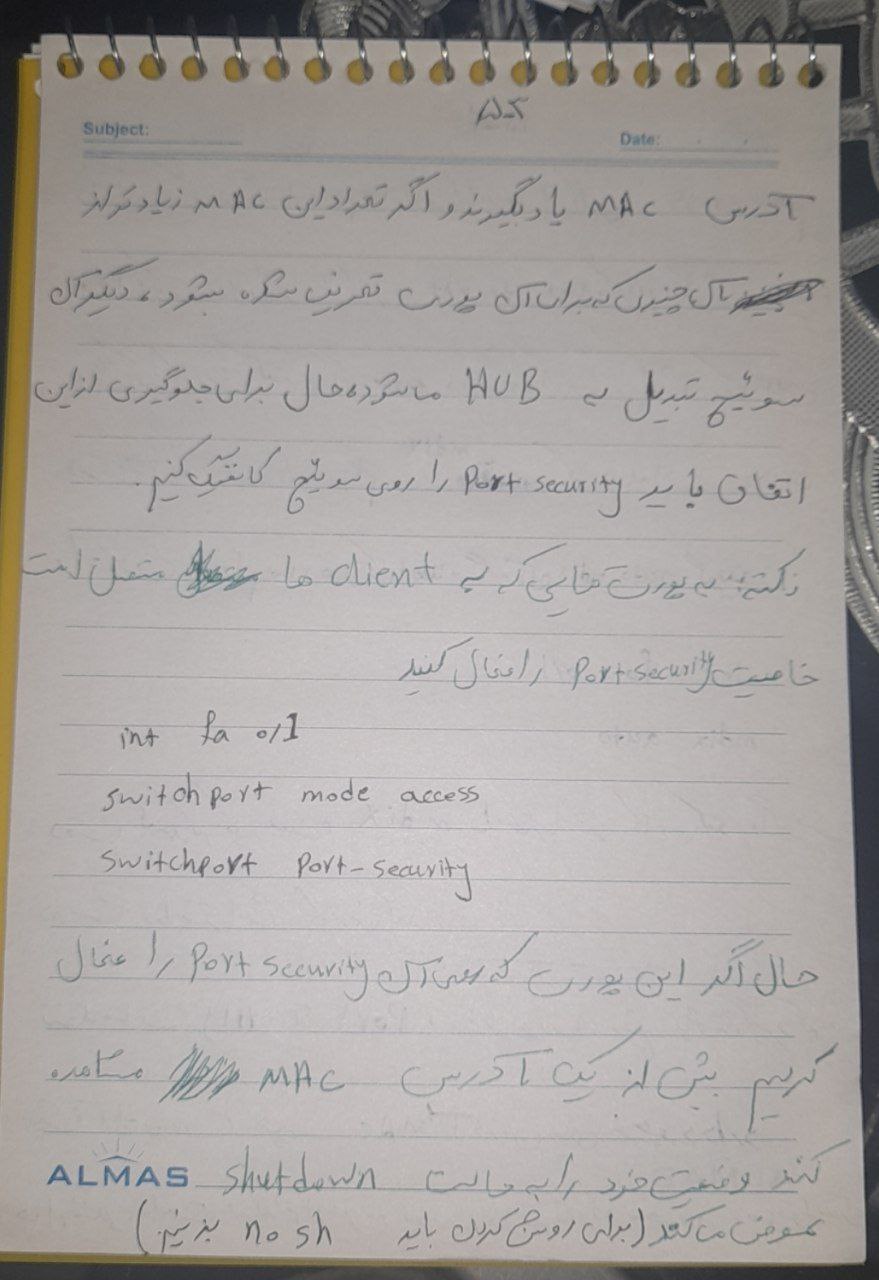 Subject:
Date:
آدرس MAC یاد بگیرند و اگر تعداد این MAC زیادتر از
آن چیزی که برای آن پورت تعریف شده میشود، دیگر آن
سوئیچ تبدیل به HUB میشود، حال برای جلوگیری از این
اتفاق باید Port security را روی سوئیچ کانفیگ کنیم.
نکته: به پورت هایی که به client ها متصل است
خاصیت Port security را فعال کنید
int fa 0/1
switchport mode access
switchport port-security
حال اگر این پورت که روی آن Port security را فعال
کردیم بیش از یک آدرس MAC مشاهده
کند وضعیت خود را به حالت shutdown
عوض می کند (برای روشن کردن باید no sh بزنیم)
ALMAS